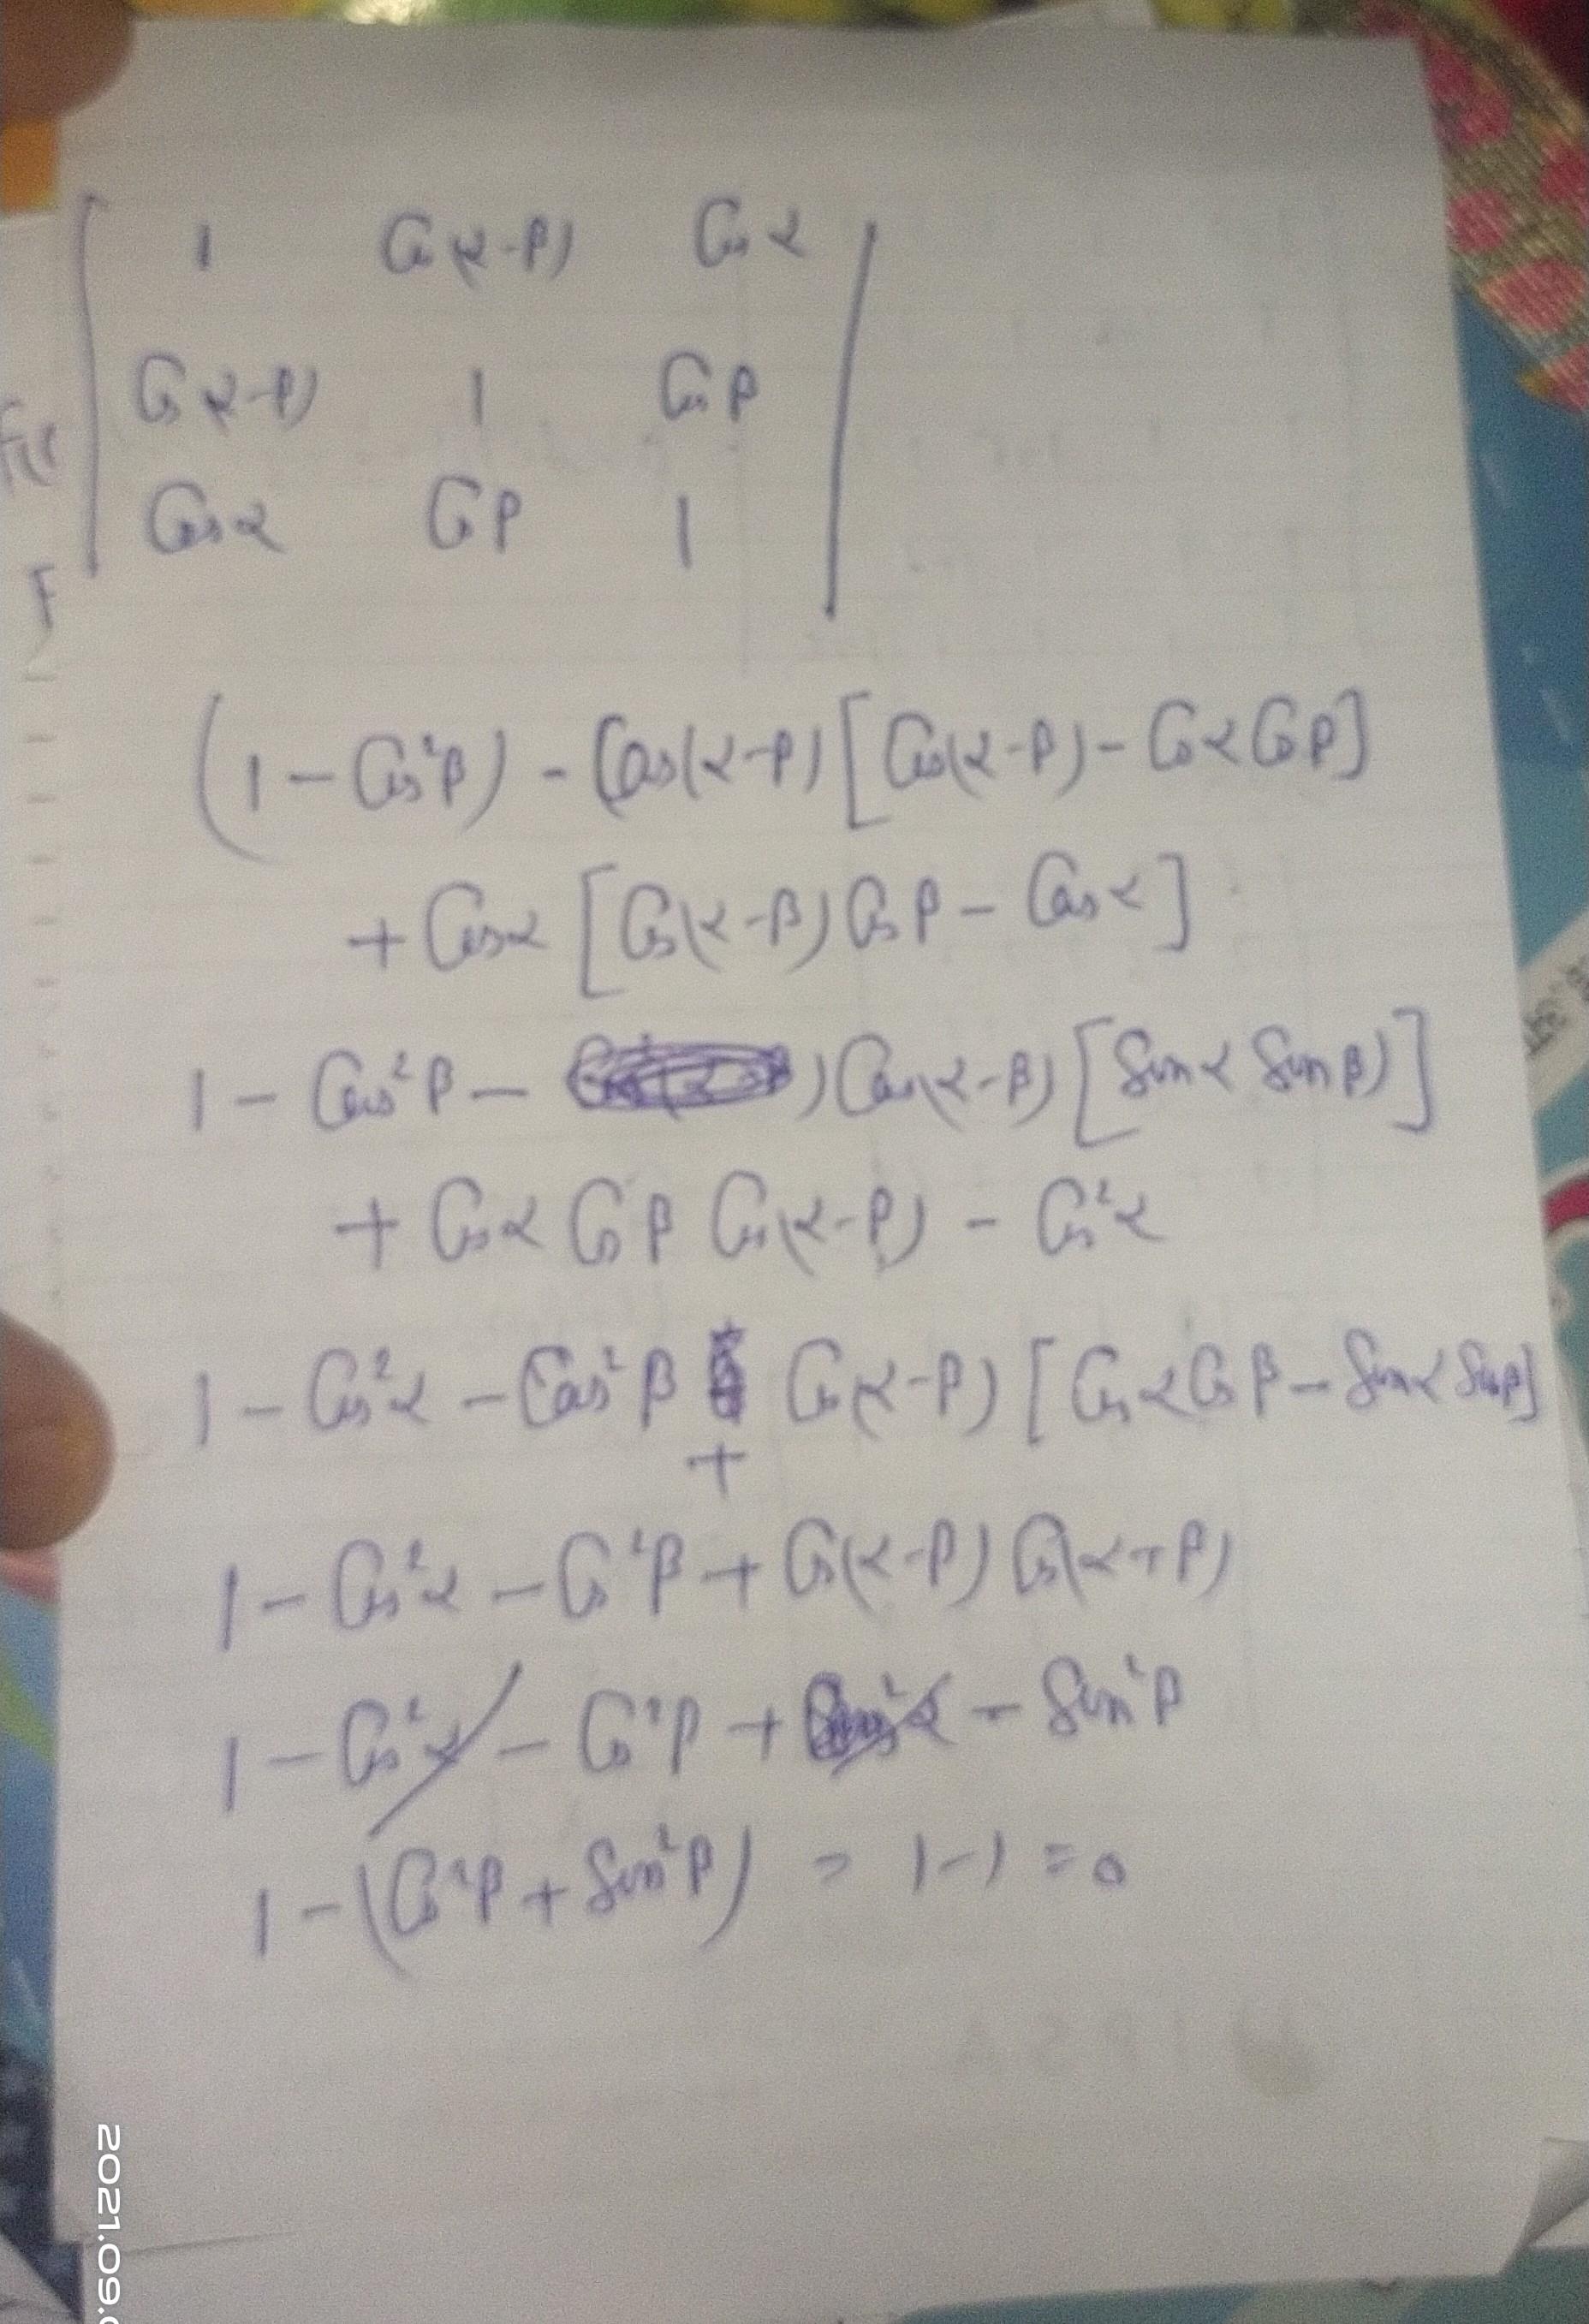 | 1 Cos(α-β) Cosα |
| Cos(α-β) 1 Cosβ |
| Cosα Cosβ 1 |
(1 - Cos²β) - Cos(α-β) [Cos(α-β) - Cosα Cosβ]
+ Cosα [Cos(α-β) Cosβ - Cosα]
1 - Cos²β - ) Cos(α-β) [Sinα Sinβ)]
+ Cosα Cosβ Cos(α-β) - Cos²α
1 - Cos²α - Cos²β + Cos(α-β) [Cosα Cosβ - Sinα Sinβ]
1 - Cos²α - Cos²β + Cos(α-β) Cos(α+β)
1 - Cos²α - Cos²β + Cos²α - Sin²β
1 - (Cos²β + Sin²β) = 1-1 = 0
2021.09.